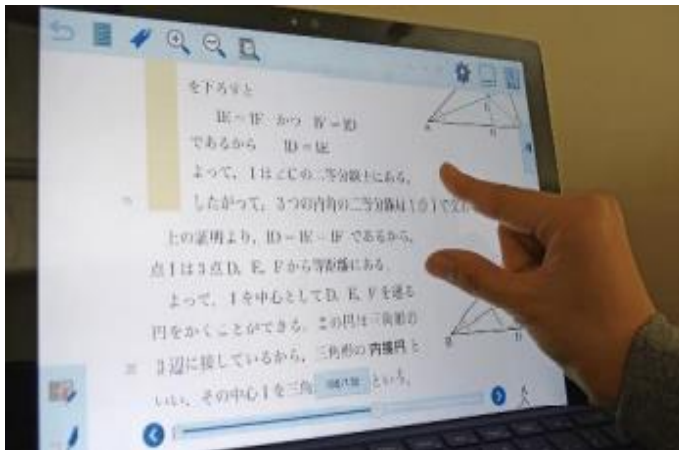 を下ろすと
IE=IF かつ IF=ID
であるから ID=IE
よって、Iは∠Cの二等分線上にある。
したがって、3つの内角の二等分線は1点Iで交わ
上の証明より、ID=IE=IF であるから、
点Iは3点D、E、Fから等距離にある。
よって、Iを中心としてD、E、Fを通る
円をかくことができる。この円は三角形の
3辺に接しているから、三角形の内接円と
いい、その中心Iを三角 という。